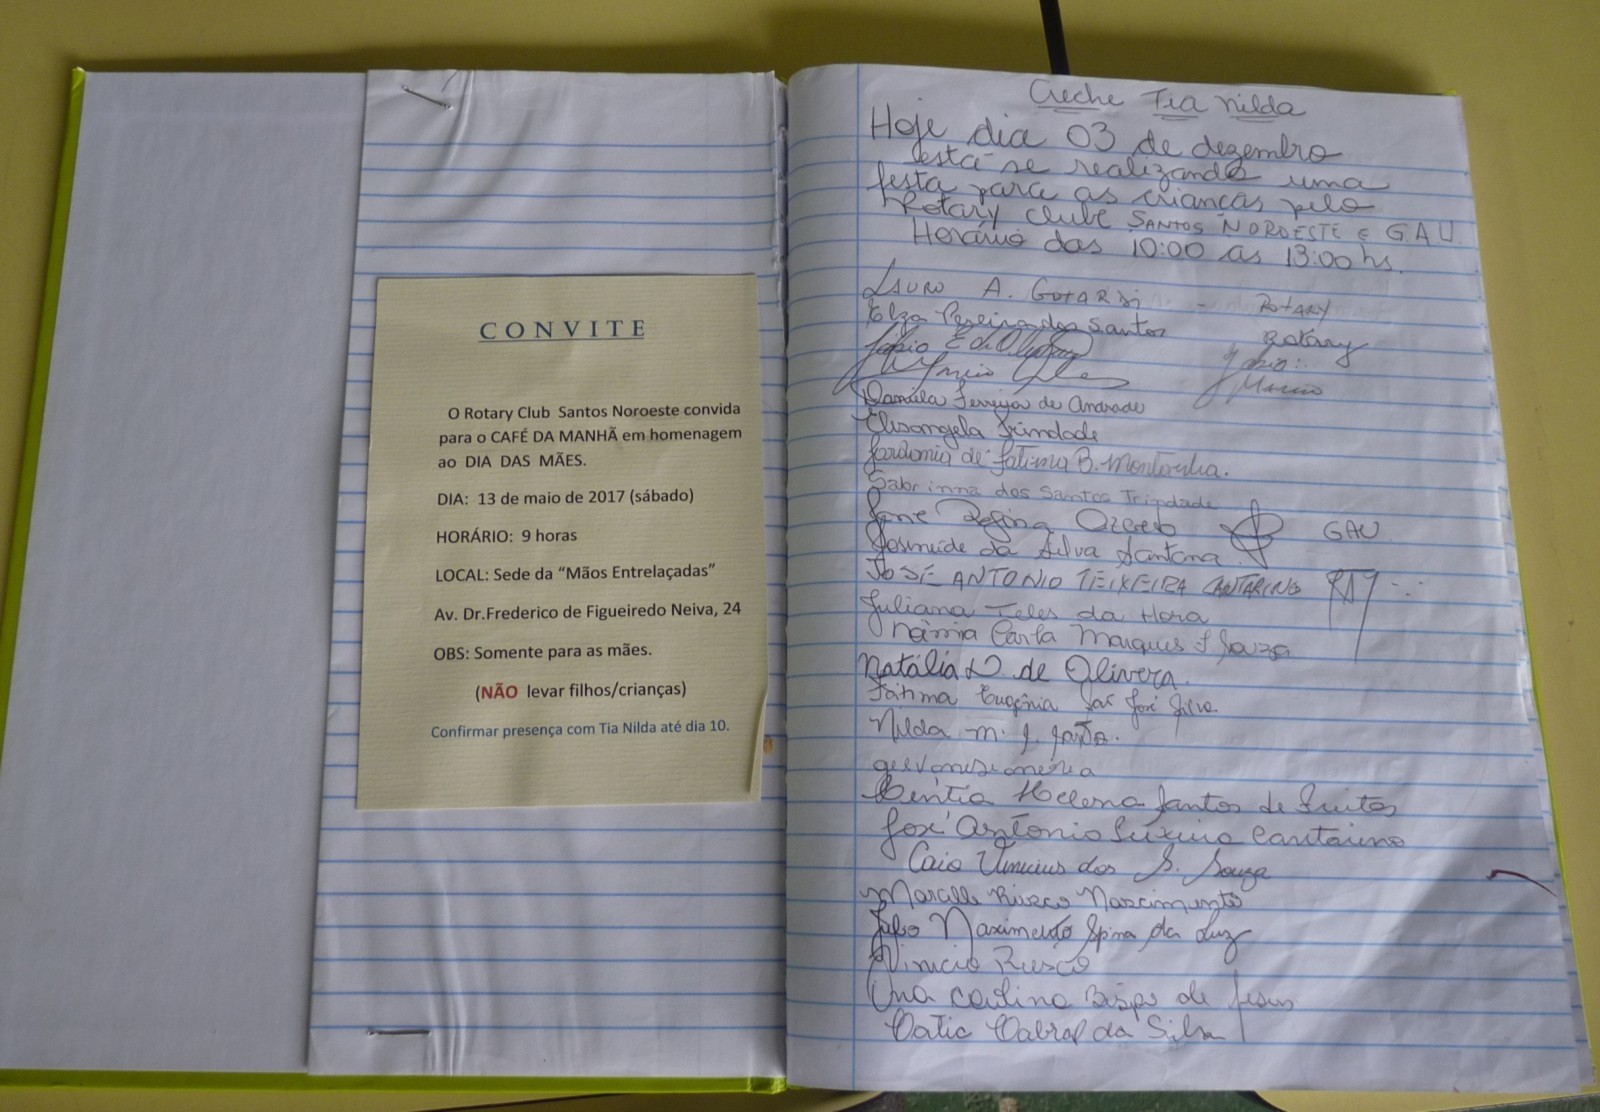 CONVITE
O Rotary Club Santos Noroeste convida
para o CAFÉ DA MANHÃ em homenagem
ao DIA DAS MÃES.
DIA: 13 de maio de 2017 (sábado)
HORÁRIO: 9 horas
LOCAL: Sede da “Mãos Entrelaçadas”
Av. Dr.Frederico de Figueiredo Neiva, 24
OBS: Somente para as mães.
(NÃO levar filhos/crianças)
Confirmar presença com Tia Nilda até dia 10.
Creche Tia Nilda
Hoje dia 03 de dezembro
está se realizando uma
festa para as crianças pelo
Rotary Clube SANTOS NOROESTE e GAU
Horário das 10:00 as 13:00 hs.
LAURO A. GOTARDI - ROTARY
Elza Pereira dos Santos Rotary
Fabio E. de
Marcio
Daniela Ferreira de Andrade
Elisangela Trindade
de Fatima B.
Sabrinna dos Santos Trindade
Jane Regina GAU
Josineide da Silva Santana
JOSÉ ANTONIO TEIXEIRA CANTARINO
Juliana Teles da Hora
Carla Marques Souza
Natália D. de Olivera.
Fátima Eugênia José Silva
Nilda m.
Helena Santos de Freitas
José Antônio Cantarino
Caio Vinicius dos S. Souza
Nascimento
Spina da Luz
Vinicio
Ana Carolina Bispo de Jesus
Cabral da Silva